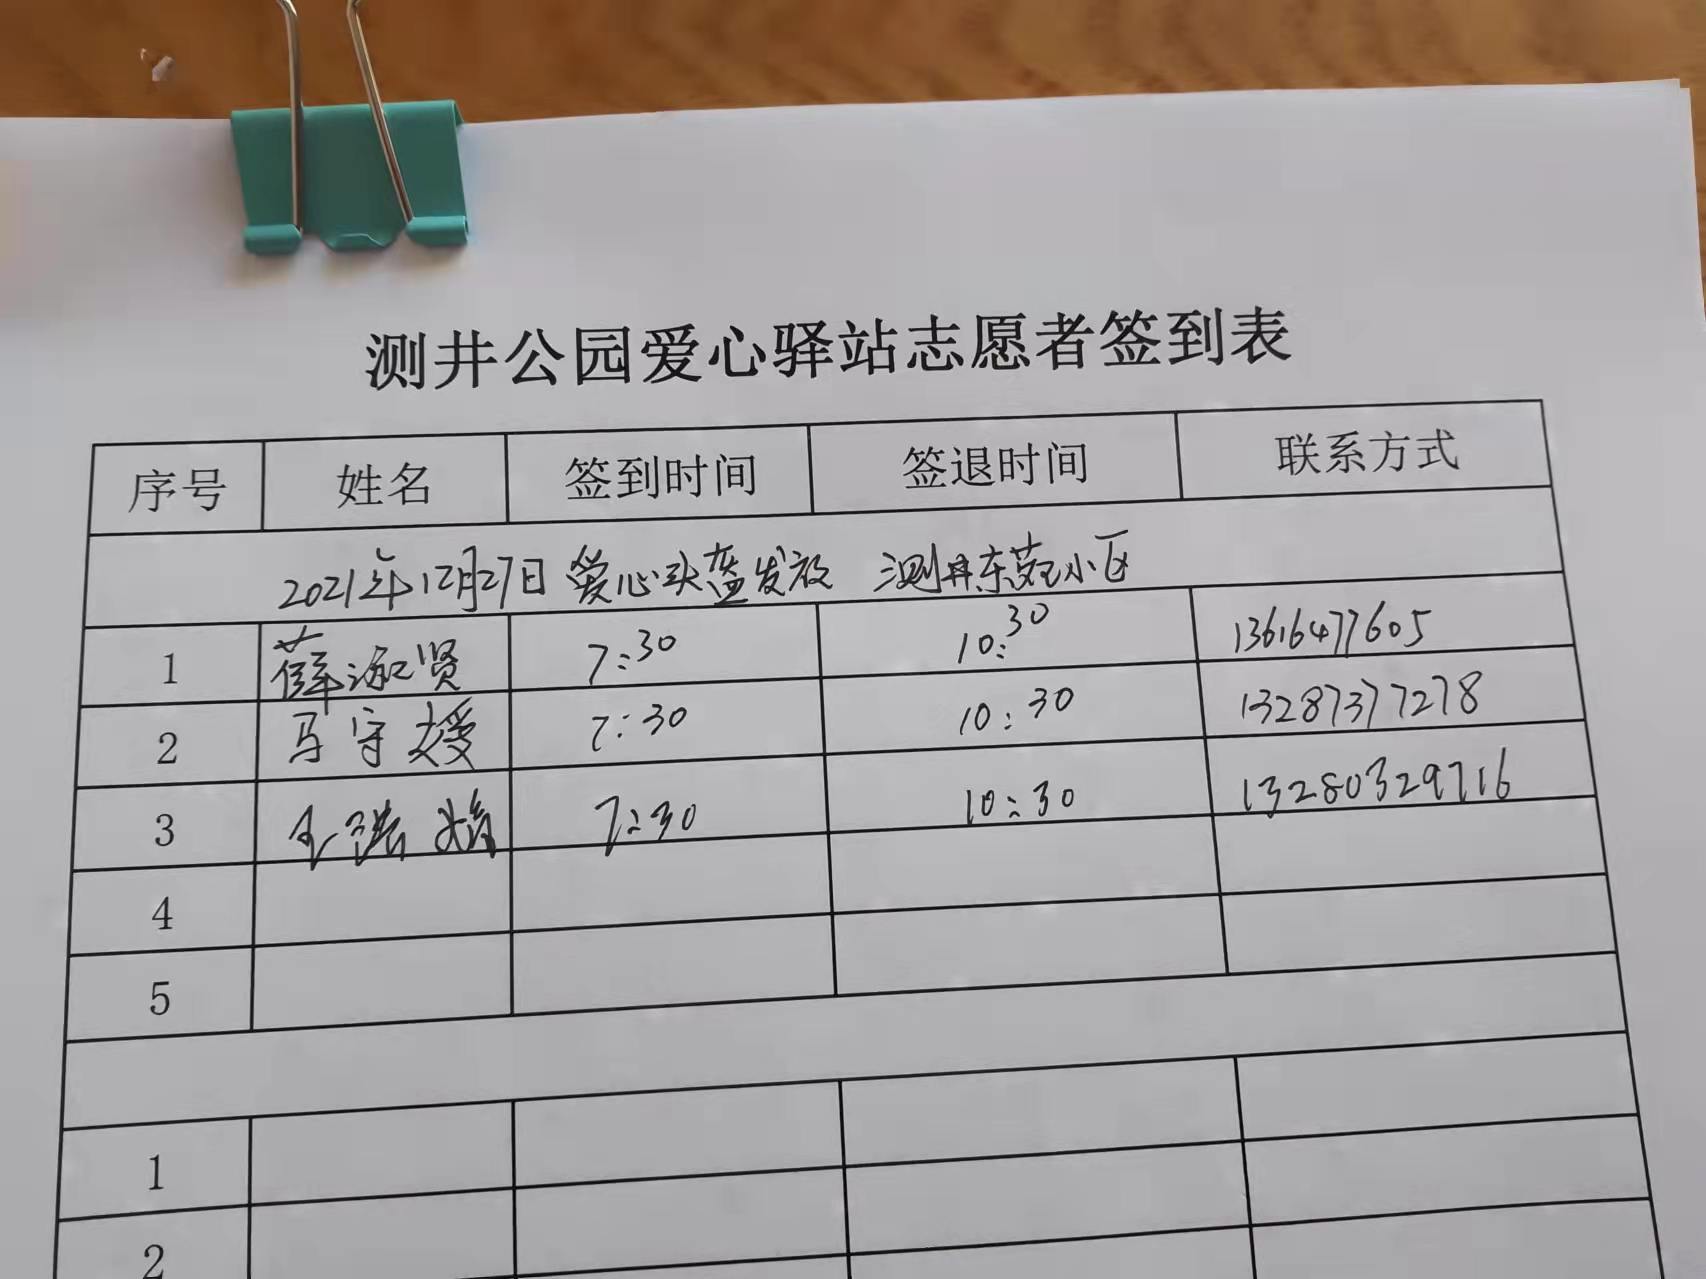 测井公园爱心驿站志愿者签到表
序号 姓名 签到时间 签退时间 联系方式
2021年12月27日 爱心头盔发放 测井东苑小区
1 薛淑贤 7:30 10:30 13616477605
2 马守媛 7:30 10:30 13287377278
3 7:30 10:30 13280329716
4
5
1
2